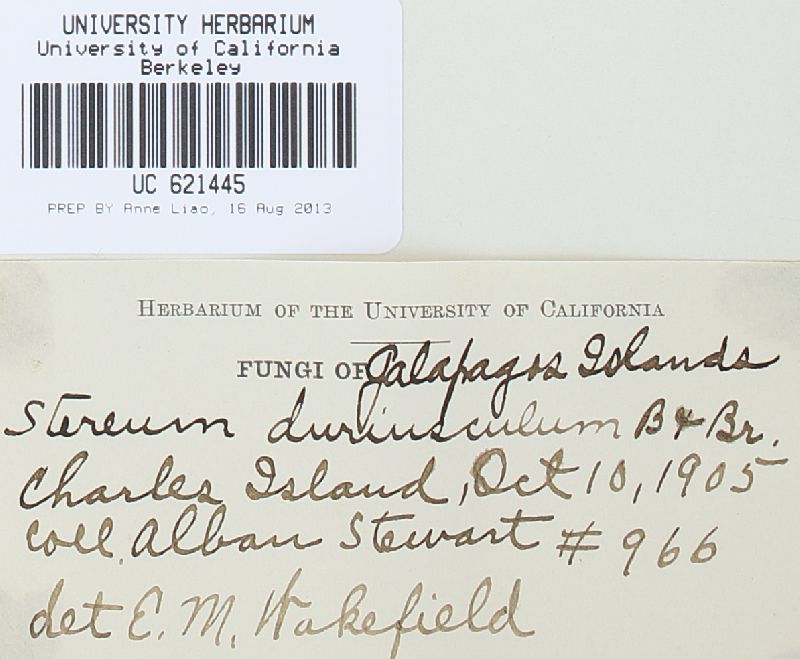 UNIVERSITY HERBARIUM
University of California
Berkeley
UC 621445
PREP BY Anne Liao, 16 Aug 2013
HERBARIUM OF THE UNIVERSITY OF CALIFORNIA
FUNGI OF Galapagos Islands
Stereum duriusculum B & Br.
Charles Island, Oct 10, 1905
Coll. Alban Stewart # 966
det E. M. Wakefield